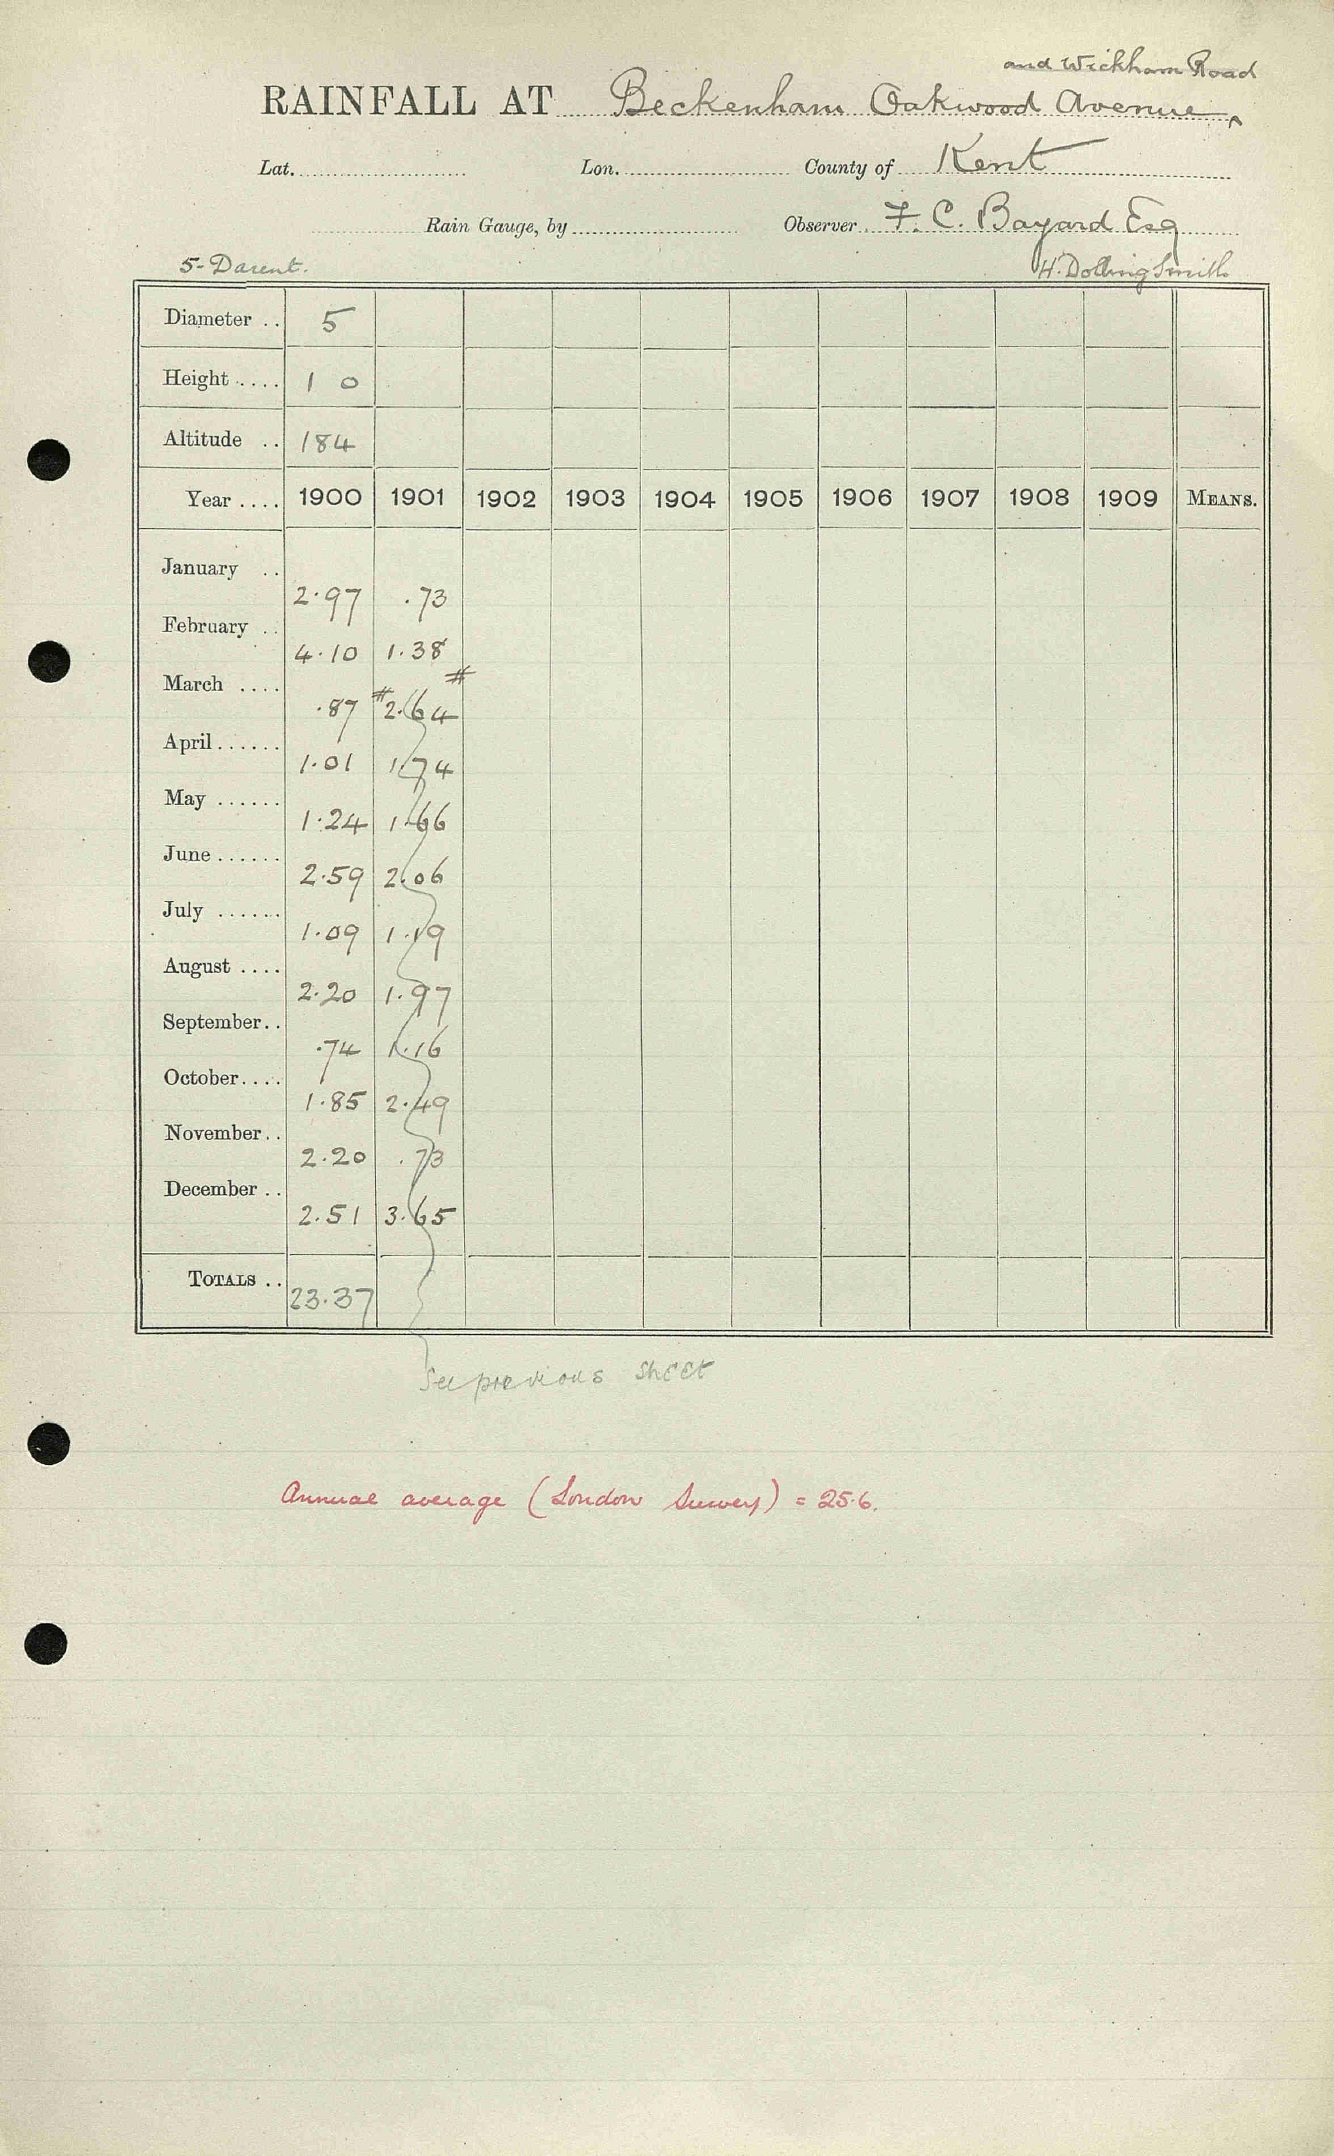 and Wickham Road
RAINFALL AT Beckenham Oakwood Avenue ^
Lat. Lon. County of Kent
Rain Gauge, by Observer F. C. Bayard Esq
5-Darent. H. Dolling Smith
Diameter .. 5
Height .... 1 0
Altitude .. 184
Year .... 1900 1901 1902 1903 1904 1905 1906 1907 1908 1909 MEANS.
January .. 2.97 .73
February .. 4.10 1.38
March .... .87 #2.64#
April ...... 1.01 1.74
May ...... 1.24 1.66
June ...... 2.59 2.06
July ...... 1.09 1.19
August .... 2.20 1.97
September.. .74 1.16
October.... 1.85 2.49
November.. 2.20 .73
December .. 2.51 3.65
TOTALS .. 23.37
See previous sheet
Annual average (London Survey) = 25.6.